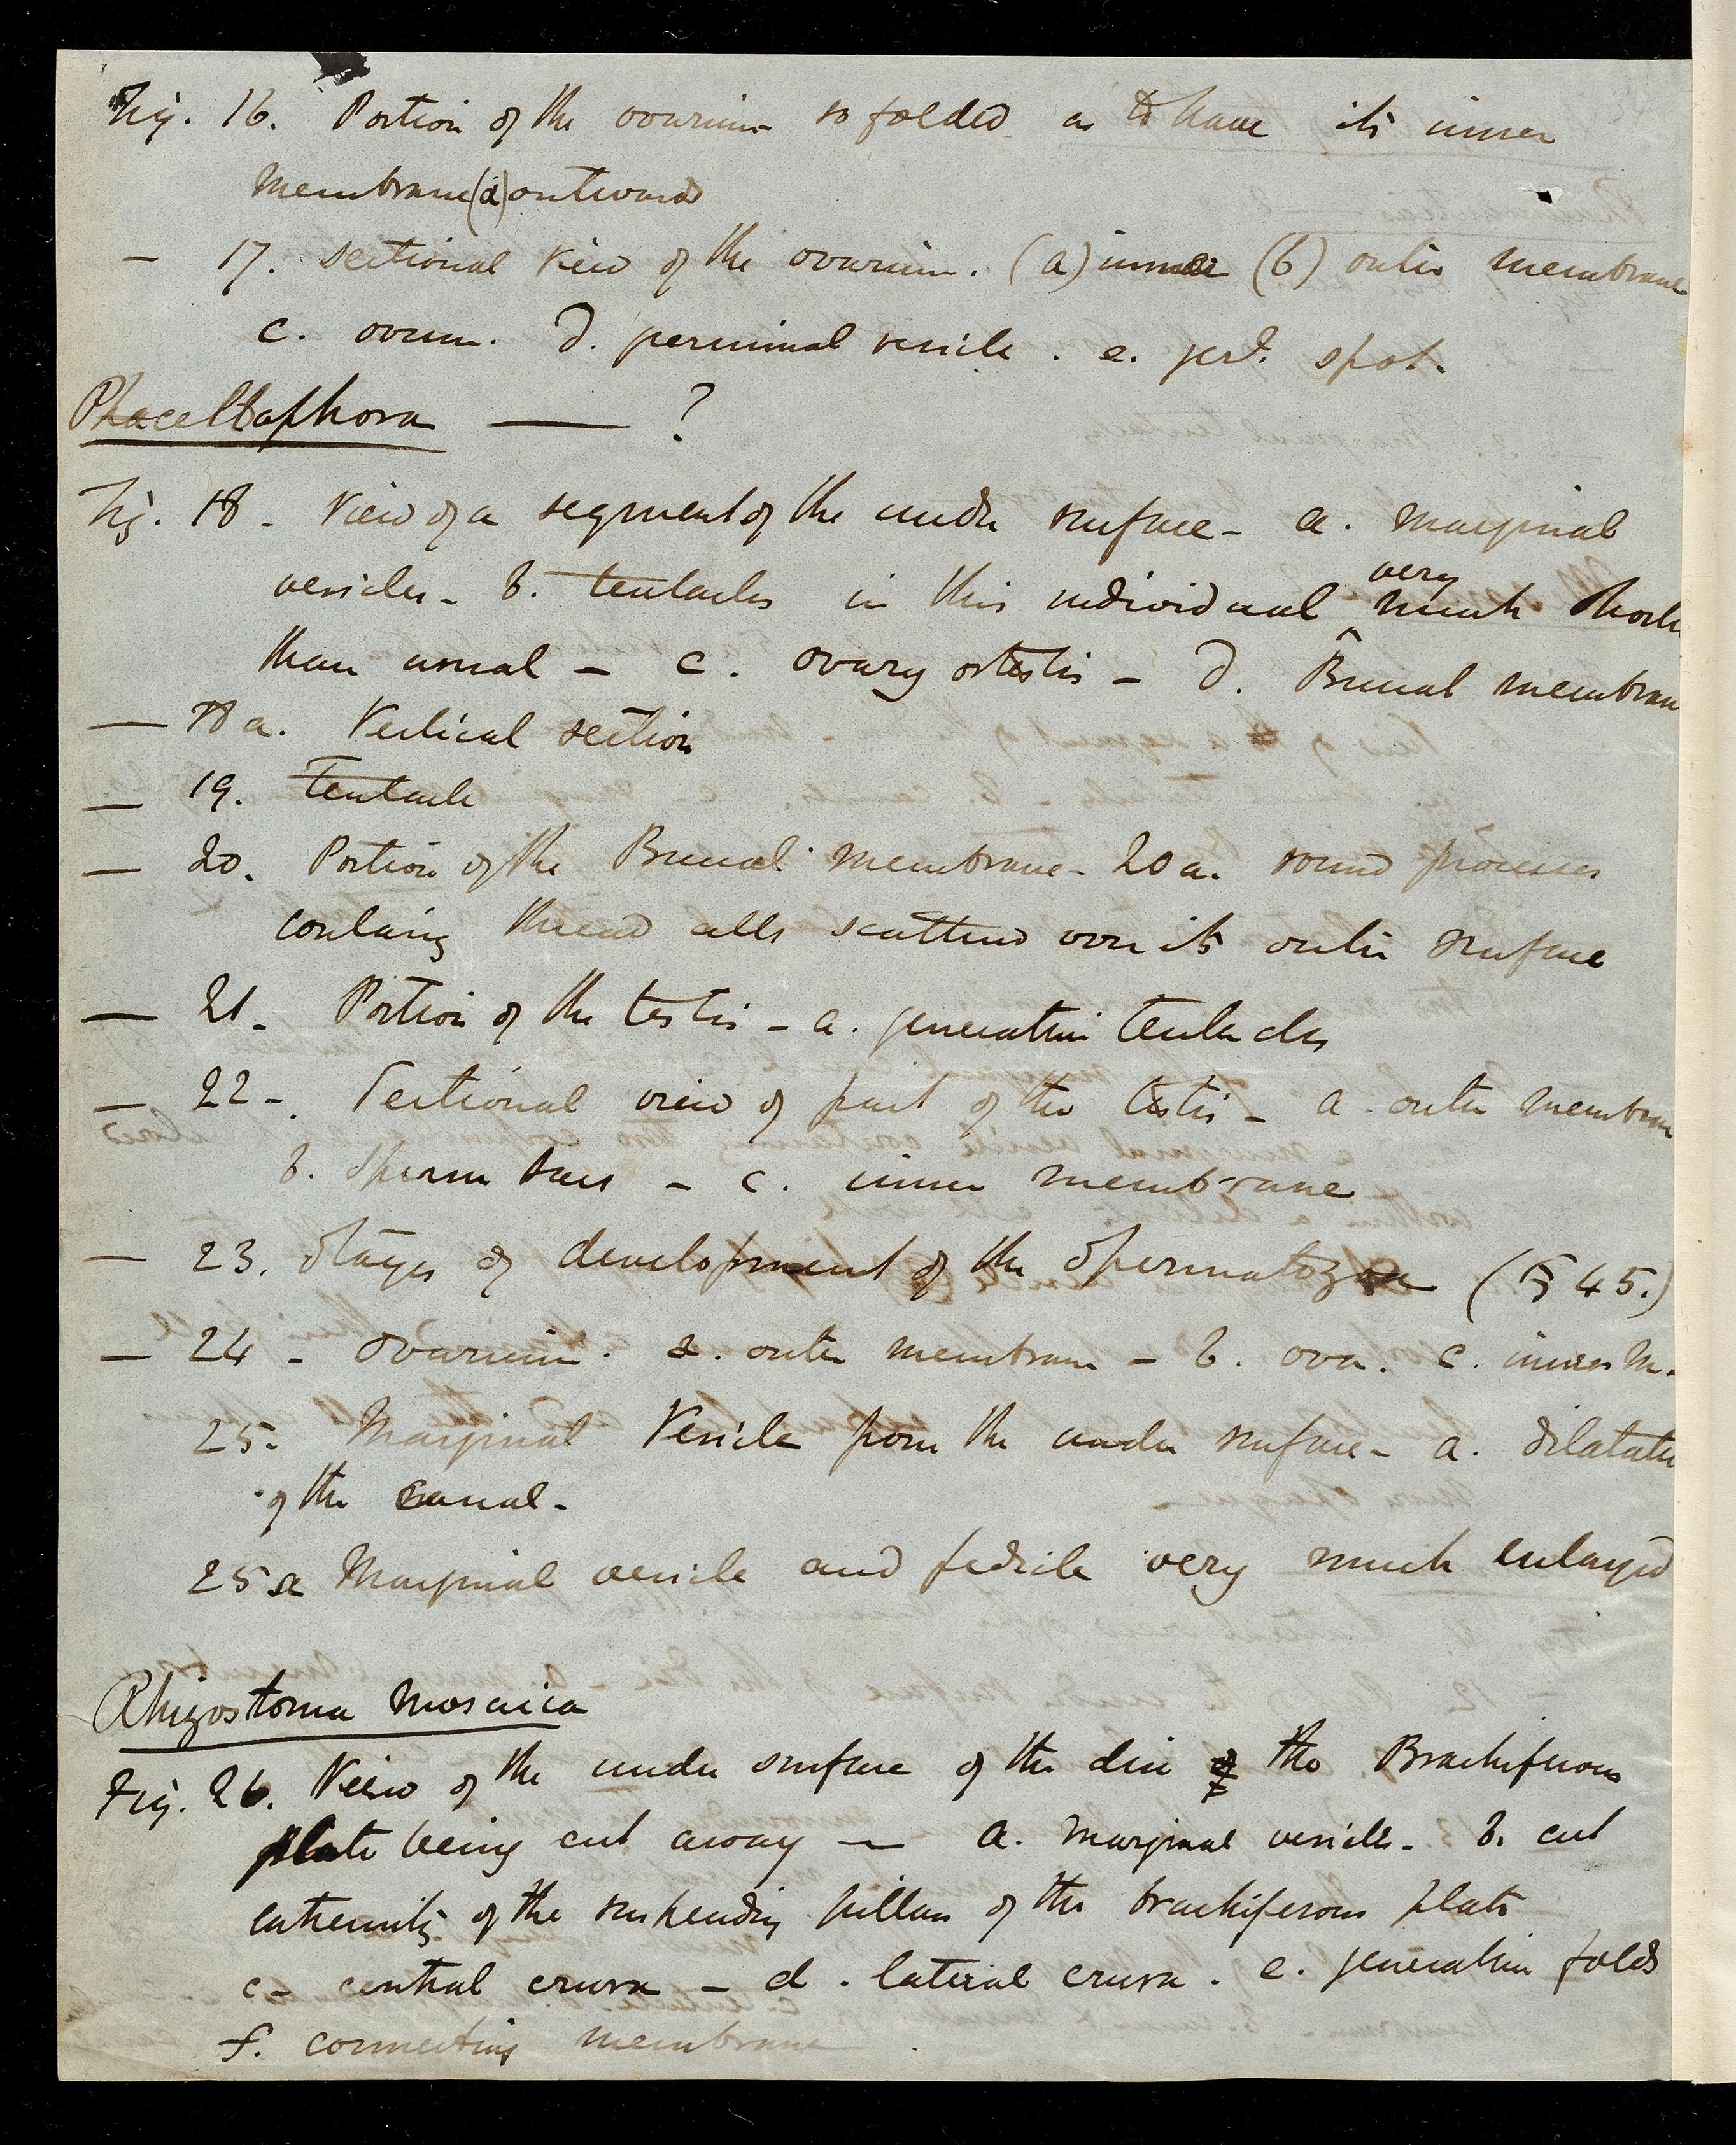 Fig. 16. Portion of the ovarium so folded as to have its inner
membrane (a) outwards
— 17. Sectional view of the ovarium. (a) inner (b) outer membrane
c. ovum. d. germinal vesicle. e. gerl. spot.
Phacellophora —— ?
Fig. 18 - View of a segment of the under surface - a. marginal
vesicles - b. tentacles in this individual very much shorter
than usual - c. ovary or testis - d. Buccal membrane
— 18 a. Vertical section
— 19. Tentacle
— 20. Portion of the Buccal membrane - 20 a. round processes
containg thread cells scattered over its outer surface
— 21 - Portion of the testis - a. generative tentacles
— 22 - Sectional view of part of the testis - a. outer membrane
b. Sperm sacs - c. inner membrane
— 23. Stages of development of the Spermatozoa (§ 45.)
— 24 - Ovarium. a. outer membrane - b. ova. c. inner m.
25. Marginal Vesicle from the under surface - a. dilatation
of the canal -
25 a Marginal vesicle and pedicle very much enlarged
Rhizostoma mosaica
Fig. 26. View of the under surface of the disc the Brachiferous
plate being cut away — a. marginal vesicles - b. cut
extremity of the suspending pillars of the brachiferous plate
c - central crura - d. lateral crura. e. generative folds
f. connecting membrane